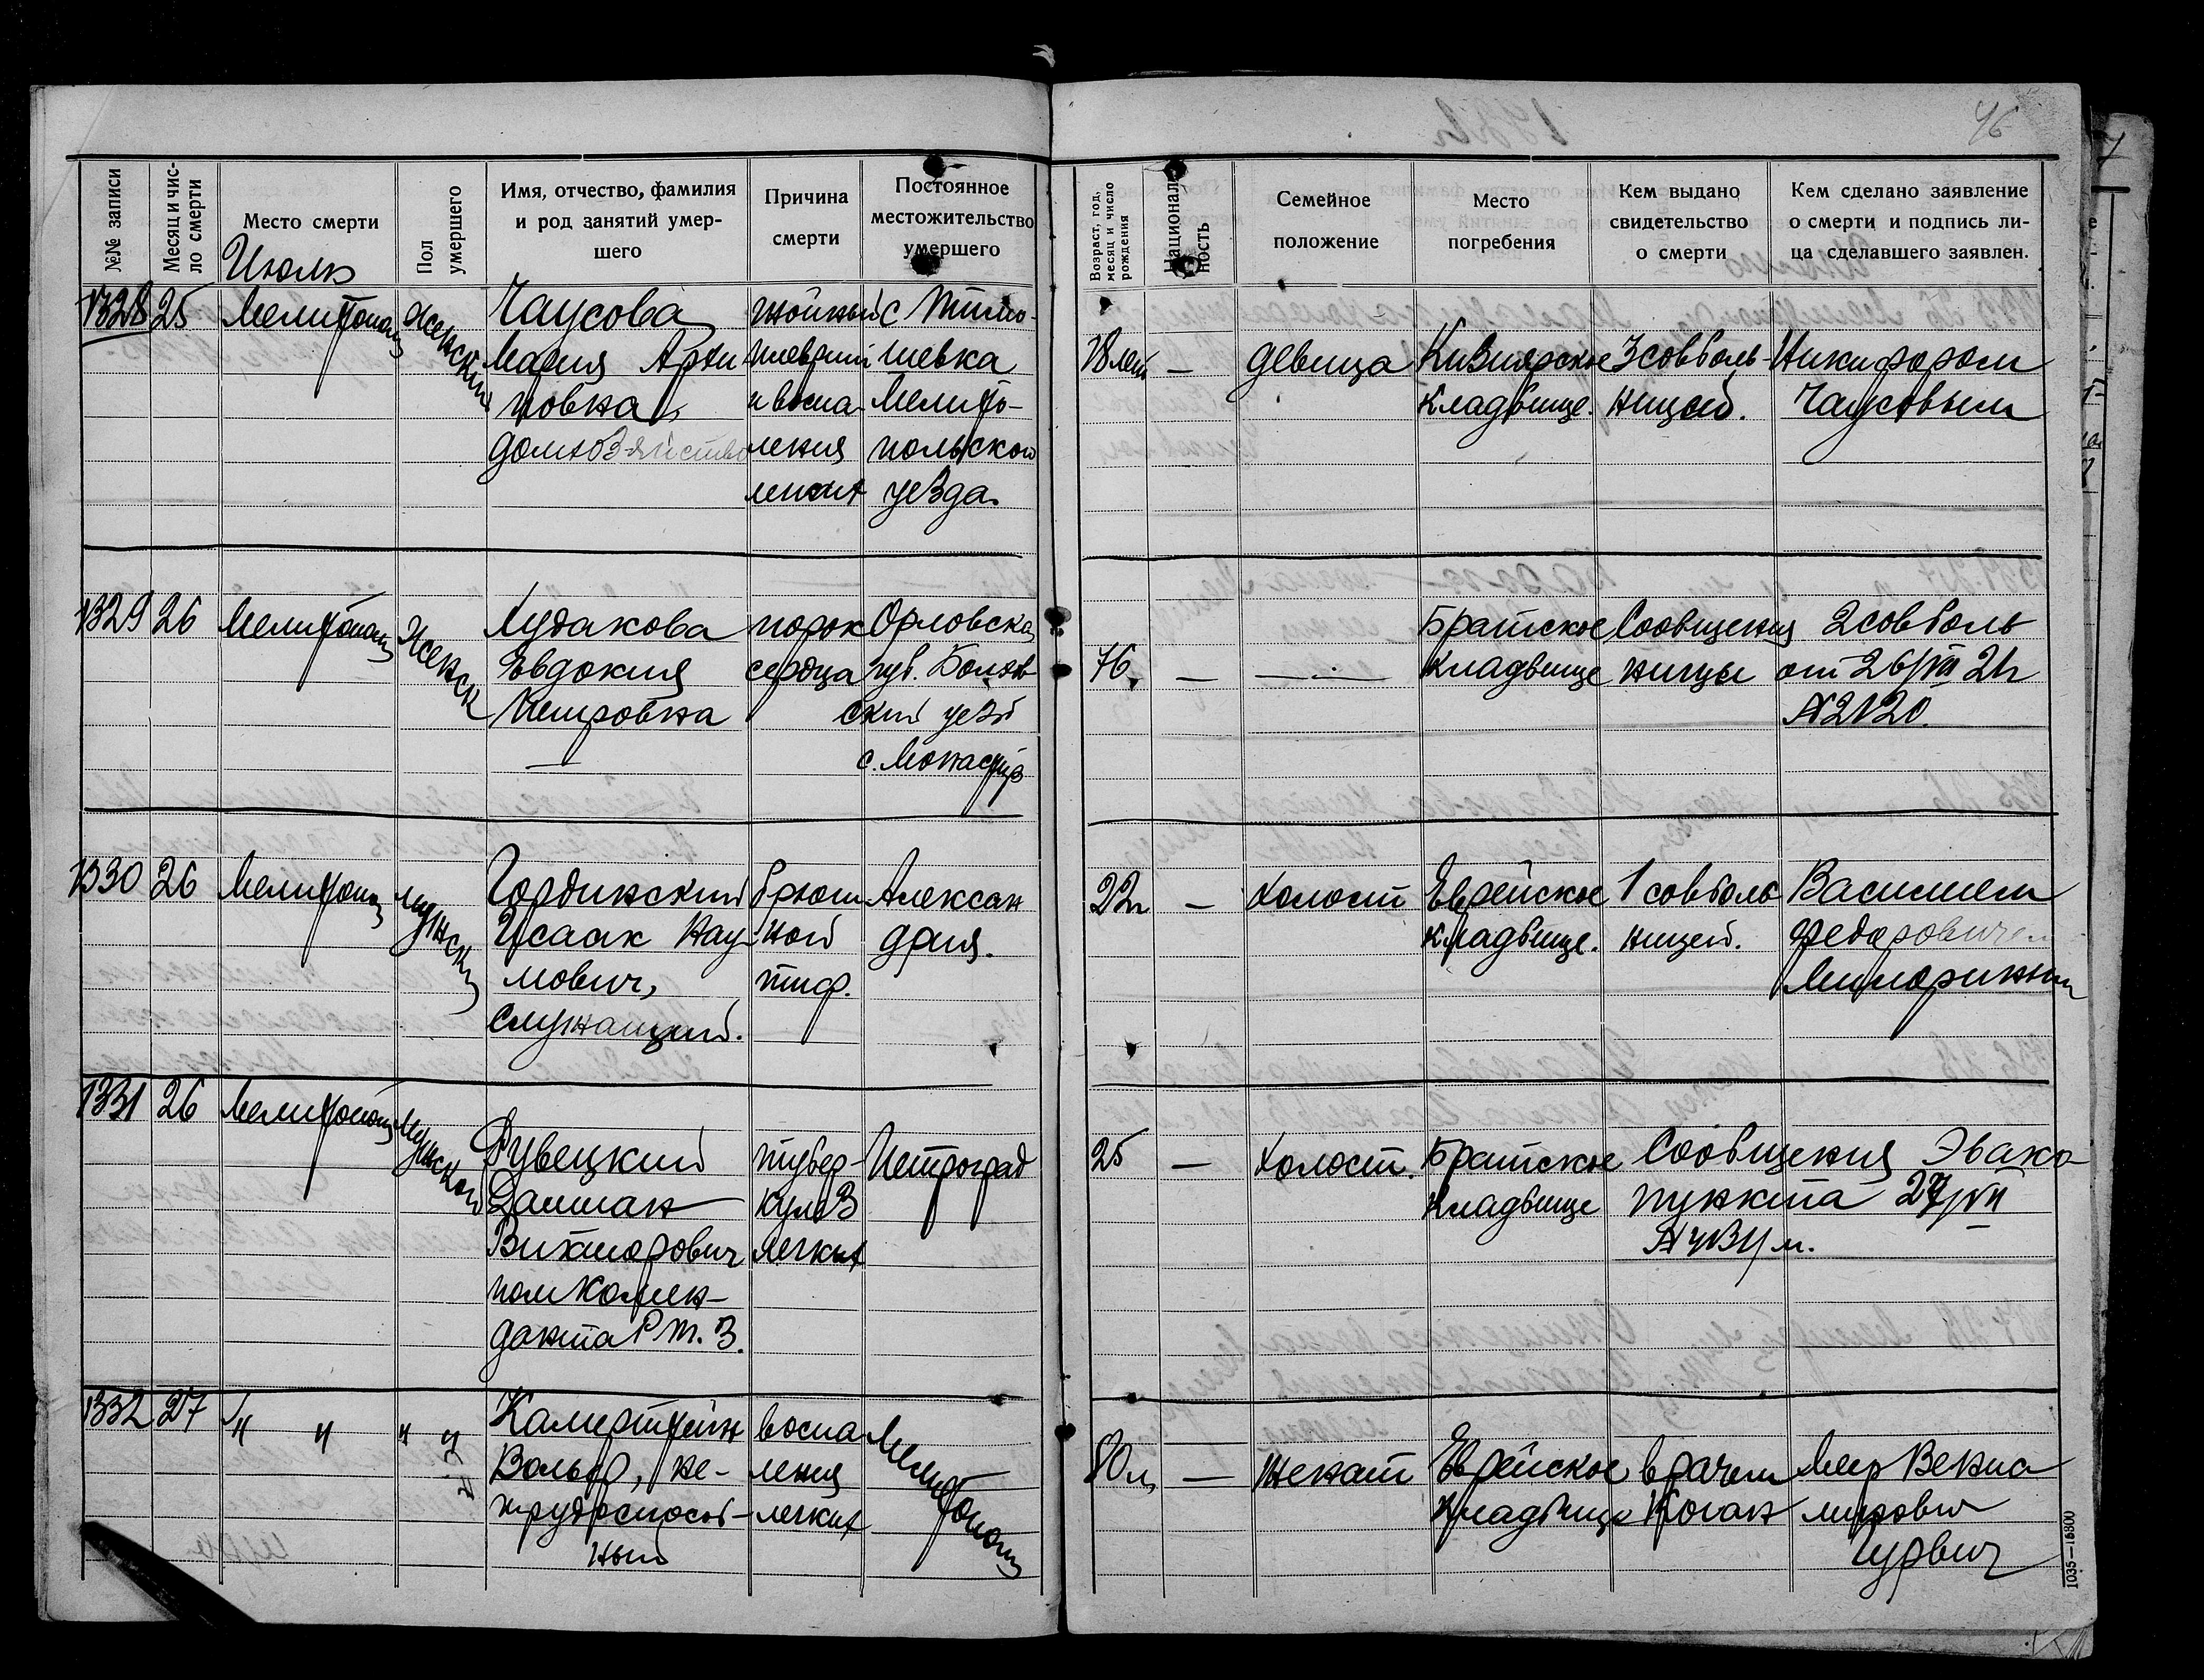 46
№№ записи
Месяц и чис-
ло смерти
Место смерти
Июль
Пол
умершего
Имя, отчество, фамилия
и род занятий умер-
шего
Причина
смерти
Постоянное
местожительство
умершего
Возраст, год,
месяц и число
рождения
Националь-
ность
Семейное
положение
Место
погребения
Кем выдано
свидетельство
о смерти
Кем сделано заявление
о смерти и подпись ли-
ца сделавшего заявлен.
1328 25 Мелитополь Женский
Чаусова
Мария Архи-
повна,
гнойный
плеврит
и воспа-
ления
легких
с Тимо-
шевка
Мелито-
польскои
уезда.
18 лет — девица
Кизиярское
Кладбище.
3 совболь-
ницей.
Никифором
Чаусовым
1329 26 Мелитополь Женск
Худакова
Евдокия
Петровна
—
порок
сердца
Орловская
губ. Болхов
ский уезд
с. Монастыр
76 — —
Братское
Кладбище
Сообщения 2 совболь
ницы от 26/VII 21г
№ 2120.
1330 26 Мелитополь мужский
Гординский
Исаак Нау-
мович,
Служащий.
брюш-
ной
тиф.
Алексан
дрия.
22л — холост
Еврейское
Кладбище.
1 совболь
ницей.
Василием
Федоровичем
1331 26 Мелитополь Мужской
Рувецкий
Викторович
пом Комен-
данта Р.т.3.
тубер-
кулез
легких
Петроград
25 — холост.
Братское
Кладбище
Сообщения Эвако
пункта 27/VII
1332 27 " " " "
Камерштейн
Вольф, не-
трудоспособ-
ный
воспа
ления
легких
Мелитополь
80л — женат
Еврейское
Кладбище
врачем
Коган
Меер
Гурвич
1035—16800